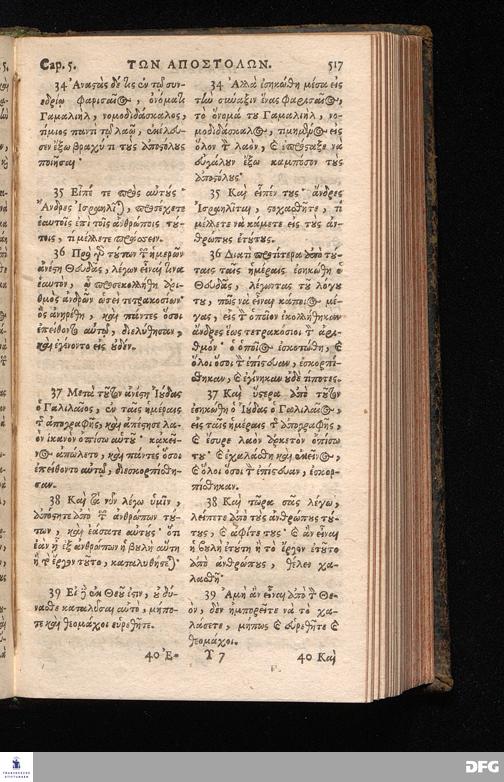 Cap. 5. ΤΩΝ ΑΠΟΣΤΟΛΩΝ. 517
34 Ἀναστὰς δέ τις ἐν τῷ συν-
εδρίῳ φαρισαῖος, ὀνόματι
Γαμαλιὴλ, νομοδιδάσκαλος,
τίμιος παντὶ τῷ λαῷ, ἐκέλευ-
σεν ἔξω βραχύ τι τοὺς ἀποστόλους
ποιῆσαι·
35 Εἶπέ τε πρὸς αὐτούς·
Ἄνδρες Ἰσραηλῖται, προσέχετε
ἑαυτοῖς ἐπὶ τοῖς ἀνθρώποις τού-
τοις, τί μέλλετε πράσσειν.
36 Πρὸ γὰρ τούτων τῶν ἡμερῶν
ἀνέστη Θευδᾶς, λέγων εἶναί τινα
ἑαυτὸν, ᾧ προσεκολλήθη ἀρι-
θμὸς ἀνδρῶν ὡσεὶ τετρακοσίων·
ὃς ἀνηρέθη, καὶ πάντες ὅσοι
ἐπείθοντο αὐτῷ, διελύθησαν,
καὶ ἐγένοντο εἰς οὐδέν.
37 Μετὰ τοῦτον ἀνέστη Ἰούδας
ὁ Γαλιλαῖος, ἐν ταῖς ἡμέραις
τῆς ἀπογραφῆς, καὶ ἀπέστησε λα-
ὸν ἱκανὸν ὀπίσω αὐτοῦ· κἀκεῖ-
νος ἀπώλετο, καὶ πάντες ὅσοι
ἐπείθοντο αὐτῷ, διεσκορπίσθη-
σαν.
38 Καὶ τὰ νῦν λέγω ὑμῖν,
ἀπόστητε ἀπὸ τῶν ἀνθρώπων τού-
των, καὶ ἐάσατε αὐτούς· ὅτι
ἐὰν ᾖ ἐξ ἀνθρώπων ἡ βουλὴ αὕτη
ἢ τὸ ἔργον τοῦτο, καταλυθήσεται·
39 Εἰ δὲ ἐκ Θεοῦ ἐστιν, οὐ δύ-
νασθε καταλῦσαι αὐτὸ, μήπο-
τε καὶ θεομάχοι εὑρεθῆτε.
40 Ἐ-
34 Ἀλλὰ ἐσηκώθη μέσα εἰς
τὴν σύναξιν ἕνας Φαρισαῖος,
τὸ ὄνομά του Γαμαλιὴλ, νο-
μοδιδάσκαλος, τιμημένος εἰς
ὅλον τὸν λαὸν, καὶ ἐπρόσταξε νὰ
εὐγάλουν ἔξω καμπόσον τοὺς
ἀποστόλους·
35 Καὶ εἶπέν τους· ἄνδρες
Ἰσραηλῖται, στοχασθῆτε, τί
μέλλετε νὰ κάμετε εἰς τοὺς ἀν-
θρώπους ἐτούτους.
36 Διατὶ προτίτερα ἀπὸ τού-
ταις ταῖς ἡμέραις ἐσηκώθη ὁ
Θευδᾶς, λέγωντας τοῦ λόγου
του, πῶς νὰ εἶναι κάποιος μέ-
γας, εἰς τὸν ὁποῖον ἐκολλήθηκαν
ἄνδρες ἕως τετρακόσιοι τὸν ἀρι-
θμὸν· ὁ ὁποῖος ἐσκοτώθη, καὶ
ὅλοι ὅσοι τὸν ἐπίστευαν, ἐσκορπί-
σθηκαν, καὶ ἐγίνηκαν οὐδὲ τίποτες.
37 Καὶ ὕστερα ἀπὸ τοῦτον
ἐσηκώθη ὁ Ἰούδας ὁ Γαλιλαῖος,
εἰς ταῖς ἡμέραις τῆς ἀπογραφῆς,
καὶ ἔσυρε λαὸν ἀρκετὸν ὀπίσω
του· καὶ ἐχαλάσθη καὶ ἐκεῖνος,
καὶ ὅλοι ὅσοι τὸν ἐπίστευαν, ἐσκορ-
πίσθηκαν.
38 Καὶ τῶρα σᾶς λέγω,
λείπετε ἀπὸ τοὺς ἀνθρώπους τού-
τους, καὶ ἀφῆτέ τους· καὶ ἂν εἶναι
ἡ βουλὴ ἐτούτη ἢ τὸ ἔργον ἐτοῦτο
ἀπὸ ἀνθρώπους, θέλει χα-
λασθῆ·
39 Ἀμὴ ἂν εἶναι ἀπὸ τὸν Θε-
ὸν, δὲν ἠμπορεῖτε νὰ τὸ χα-
λάσετε, μήπως καὶ εὑρεθῆτε καὶ
θεομάχοι.
Υ 7 40 Καὶ
DFG